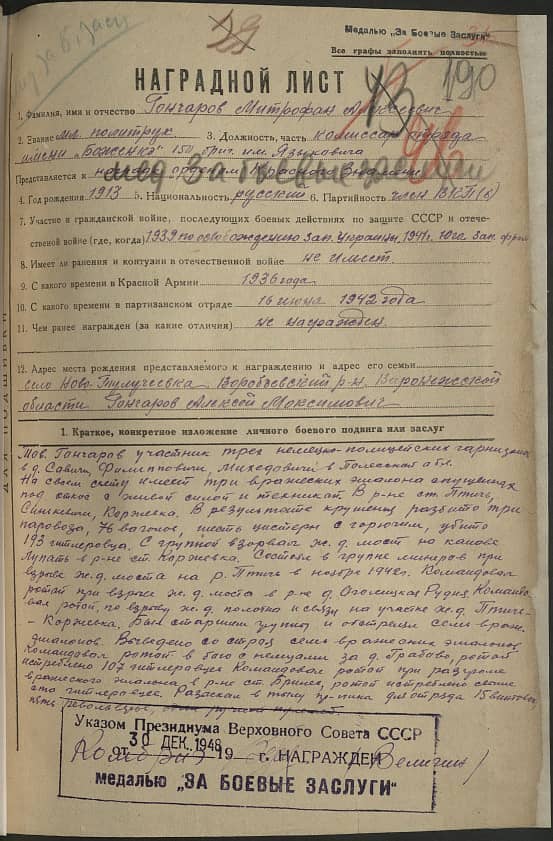 Медалью „За Боевые Заслуги"
Все графы заполнять полностью
НАГРАДНОЙ ЛИСТ
190
1. Фамилия, имя и отчество Гончаров Митрофан Алексеевич
2. Звание мл. политрук 3. Должность, часть комиссар отряда
имени „Боженко" 150 бриг. им. Языковича
Представляется к награде орденом Красного Знамени
мед За боевые заслуги
4. Год рождения 1913 5. Национальность русский 6. Партийность член ВКП(б)
7. Участие в гражданской войне, последующих боевых действиях по защите СССР и отече-
ственой войне (где, когда) 1939 по освобождению Зап. Украины, 1941г. Юго Зап. фронт
8. Имеет ли ранения и контузии в отечественной войне не имеет.
9. С какого времени в Красной Армии 1936 года
10. С какого времени в партизанском отряде 16 июня 1942 года
11. Чем ранее награжден (за какие отличия) не награжден.
12. Адрес места рождения представляемого к награждению и адрес его семьи
село Ново-Толучеевка Воробьевский р-н. Воронежской
области Гончаров Алексей Максимович
1. Краткое, конкретное изложение личного боевого подвига или заслуг
Тов. Гончаров участник трех немецко-полицейских гарнизонов
в д. Савичи, Филипповичи, Михедовичи в Полесской обл.
На своем счету имеет три вражеских эшелона спущенных
под откос с живой силой и техникой. В р-не ст. Птичь,
Коржевка. В результате крушения разбито три
паровоза, 76 вагонов, шесть цистерн с горючим, убито
193 гитлеровца. С группой взорвал ж.д. мост на канаве
в р-не ст. Коржевка. Состоял в группе минеров при
взрыве ж.д. моста на р. Птичь в ноябре 1942г. Командовал
ротой при взрыве ж.д. моста в р-не д. Оголицкая Рудня, Командо-
вал ротой, по взрыву ж.д. полотна и связи на участке ж.д. Птичь-
- Коржевка. Был старшим групп и обстрелял семь враж.
эшелонов. Выведено со строя семь вражеских эшелонов
Командовал ротой в бою с немцами за д. Грабово, ротой
истреблено 107 гитлеровцев Командовал ротой при разгроме
вражеского эшелона в р-не ст. Бринев, ротой истреблено свыше
ста гитлеровцев. Разыскал в тылу пр-тика для отряда 15 винтовок,
пять револьверов,
Указом Президиума Верховного Совета СССР
от 30 ДЕК. 1948 19 г. НАГРАЖДЕН
медалью „ЗА БОЕВЫЕ ЗАСЛУГИ"
ДЛЯ ПОДШИВКИ